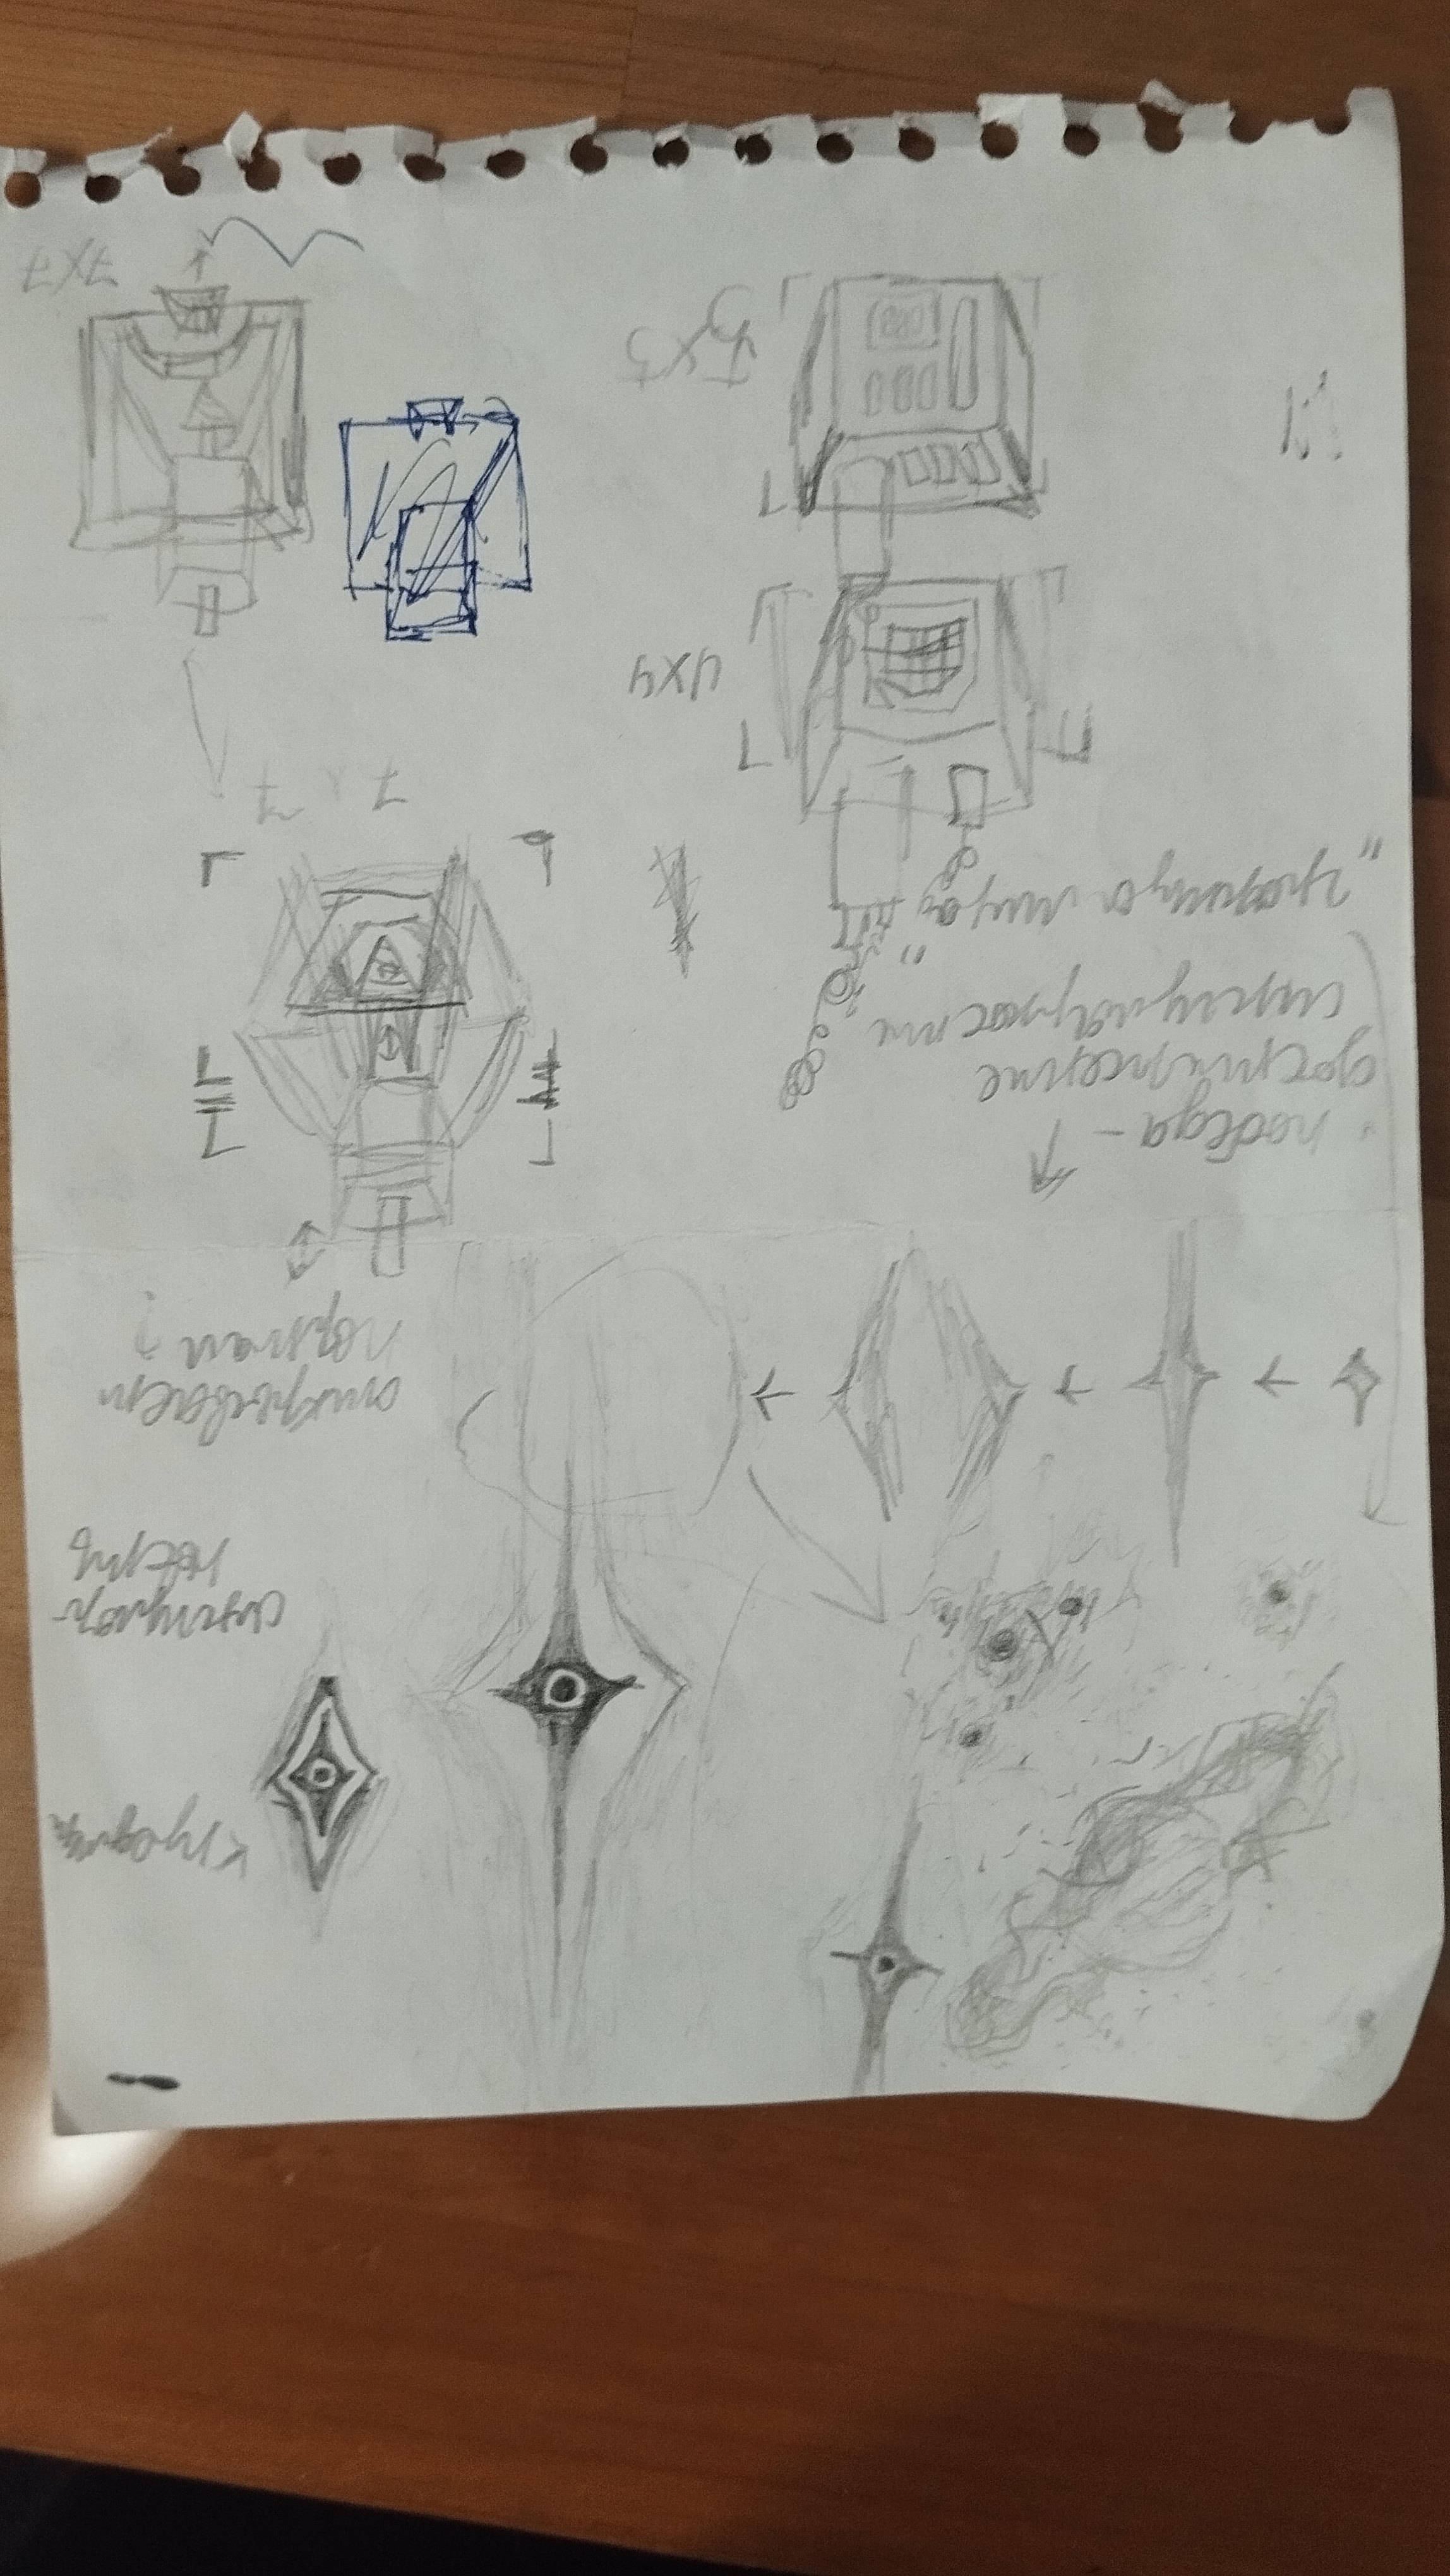 сингуляр-
ность
открывает
портал?
победа -
достижение
сингулярности
"граница мира"
7 x 7
4X4
5X5
7X7